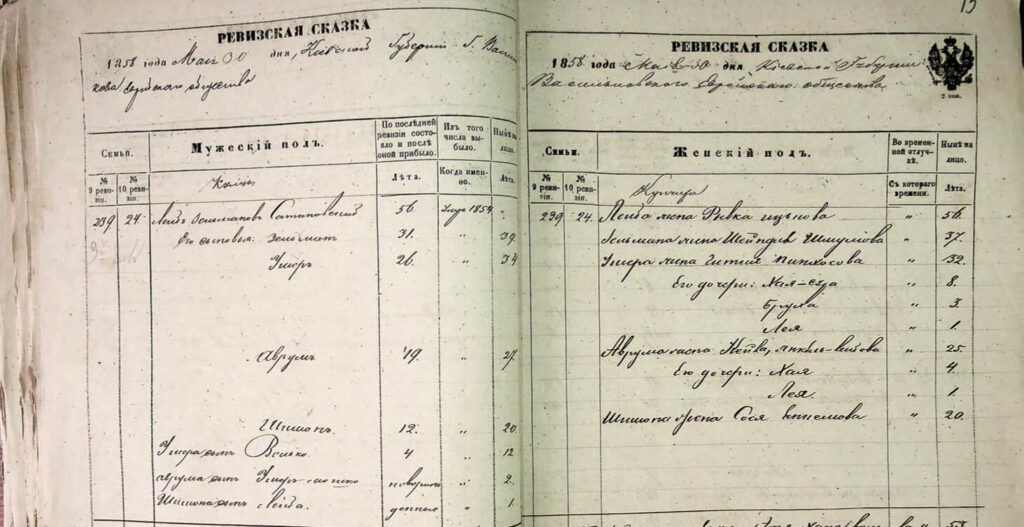 РЕВИЗСКАЯ СКАЗКА
1858 года Мая 30 дня, Кіевской Губерніи Г. Василь
кова Еврейскаго общества
Семьи.
Мужескій полъ.
По послѣдней ревизіи состояло и послѣ оной прибыло.
Изъ того числа выбыло.
Нынѣ на лицо.
№ 9 ревизіи.
№ 10 ревизіи.
Лѣта.
Когда именно.
Лѣта.
239 24. Лейба Сатановскій 56. 1854 "
Его сыновья: Зельманъ 31. " 39
Ушеръ 26. " 34
Аврумъ 19. " 27
Шимонъ. 12. " 20
Ушера сынъ Волько 4 " 12
Аврума сынъ Ушеръ- новорож " 2.
Шимона сынъ Лейба. денные " 1
13
РЕВИЗСКАЯ СКАЗКА
1858 года Мая 30 дня Кіевской Губерніи
Васильковскаго Еврейскаго общества
2 коп.
Семьи.
Женскій полъ.
Во временной отлучкѣ.
Нынѣ на лицо.
№ 9 ревизіи.
№ 10 ревизіи.
Съ котораго времени.
Лѣта.
239 24. Лейба жена Ривка Ицькова " 56.
Зельмана жена Шейндля Шмулiова " 37.
Ушера жена Гитля Пинхосова " 32.
Его дочери: Хая- " 8.
Бруха " 3.
Лея " 1.
Аврума жена " 25.
Его дочери: Хая " 4.
Лея. " 1.
Шимона жена Сося " 20.